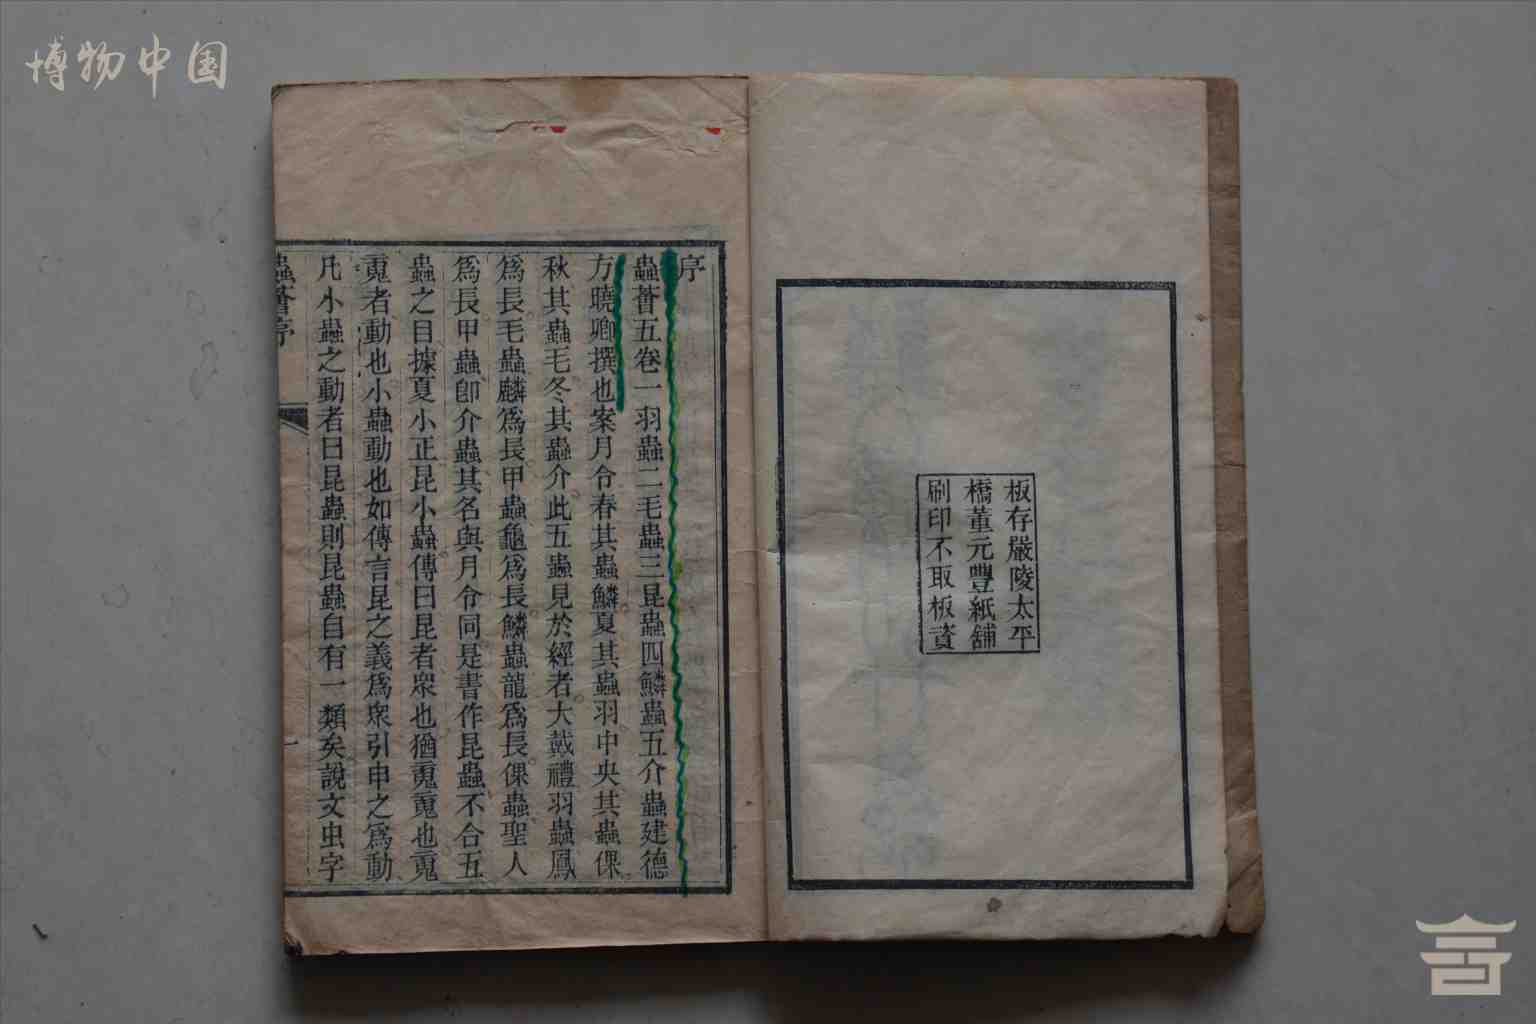 博物中国
板存嚴陵太平
橋董元豐紙舖
刷印不取板資
序
蟲薈五卷一羽蟲二毛蟲三昆蟲四鱗蟲五介蟲建德
方曉卿撰也案月令春其蟲鱗夏其蟲羽中央其蟲倮
秋其蟲毛冬其蟲介此五蟲見於經者大戴禮羽蟲鳳
爲長毛蟲麟爲長甲蟲龜爲長鱗蟲龍爲長倮蟲聖人
爲長甲蟲卽介蟲其名與月令同是書作昆蟲不合五
蟲之目據夏小正昆小蟲傳曰昆者衆也猶䰟䰟也䰟
䰟者動也小蟲動也如傳言昆之義爲衆引申之爲動
凡小蟲之動者曰昆蟲則昆蟲自有一類矣說文虫字
蟲薈序
一